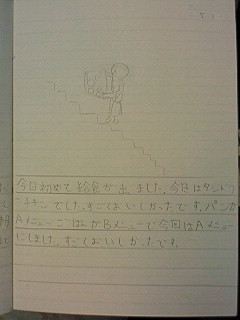 今日初めて給食が出ました。今日はタンドリ
ーチキンでした。すごくおいしかったです。パンが
AメニューごはんがBメニューで今回はAメニュー
にしました。すごくおいしかったです。